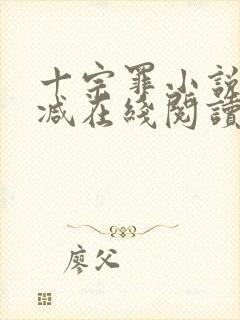 十宗罪小說
減在綫閱讀
廖父